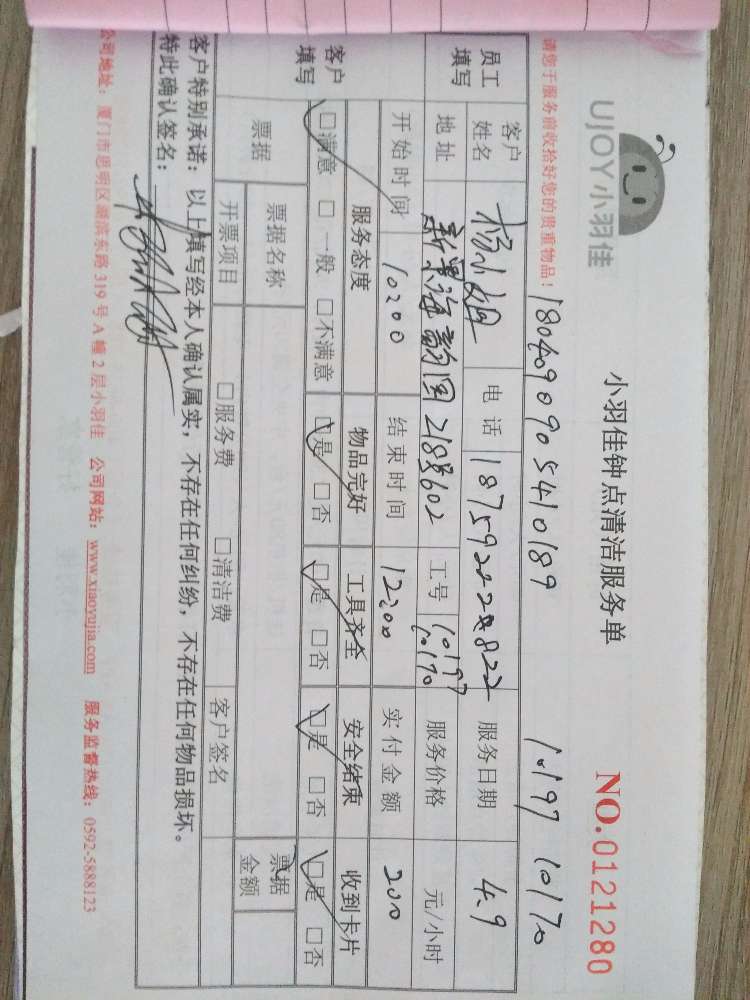 UJOY小羽佳
小羽佳钟点清洁服务单
NO.0121280
请您于服务前收拾好您的贵重物品！
1804090905410189 10197 10170
员工填写 客户姓名 杨小姐 电话 服务日期 4.9
地址 新景海韵园 工号 10197 10170 服务价格 元/小时
开始时间 10:00 结束时间 12:00 实付金额 200
客户填写 服务态度 物品完好 工具齐全 安全结束 收到卡片
□满意 □一般 □不满意 □是 □否 □是 □否 □是 □否 □是 □否
票据 票据名称 票据金额
开票项目 □服务费 □清洁费 客户签名
客户特别承诺：以上填写经本人确认属实，不存在任何纠纷，不存在任何物品损坏。
特此确认签名：
公司地址：厦门市思明区湖滨东路319号A幢2层小羽佳 公司网站：www.xiaoyujia.com 服务监督热线：0592-5888123